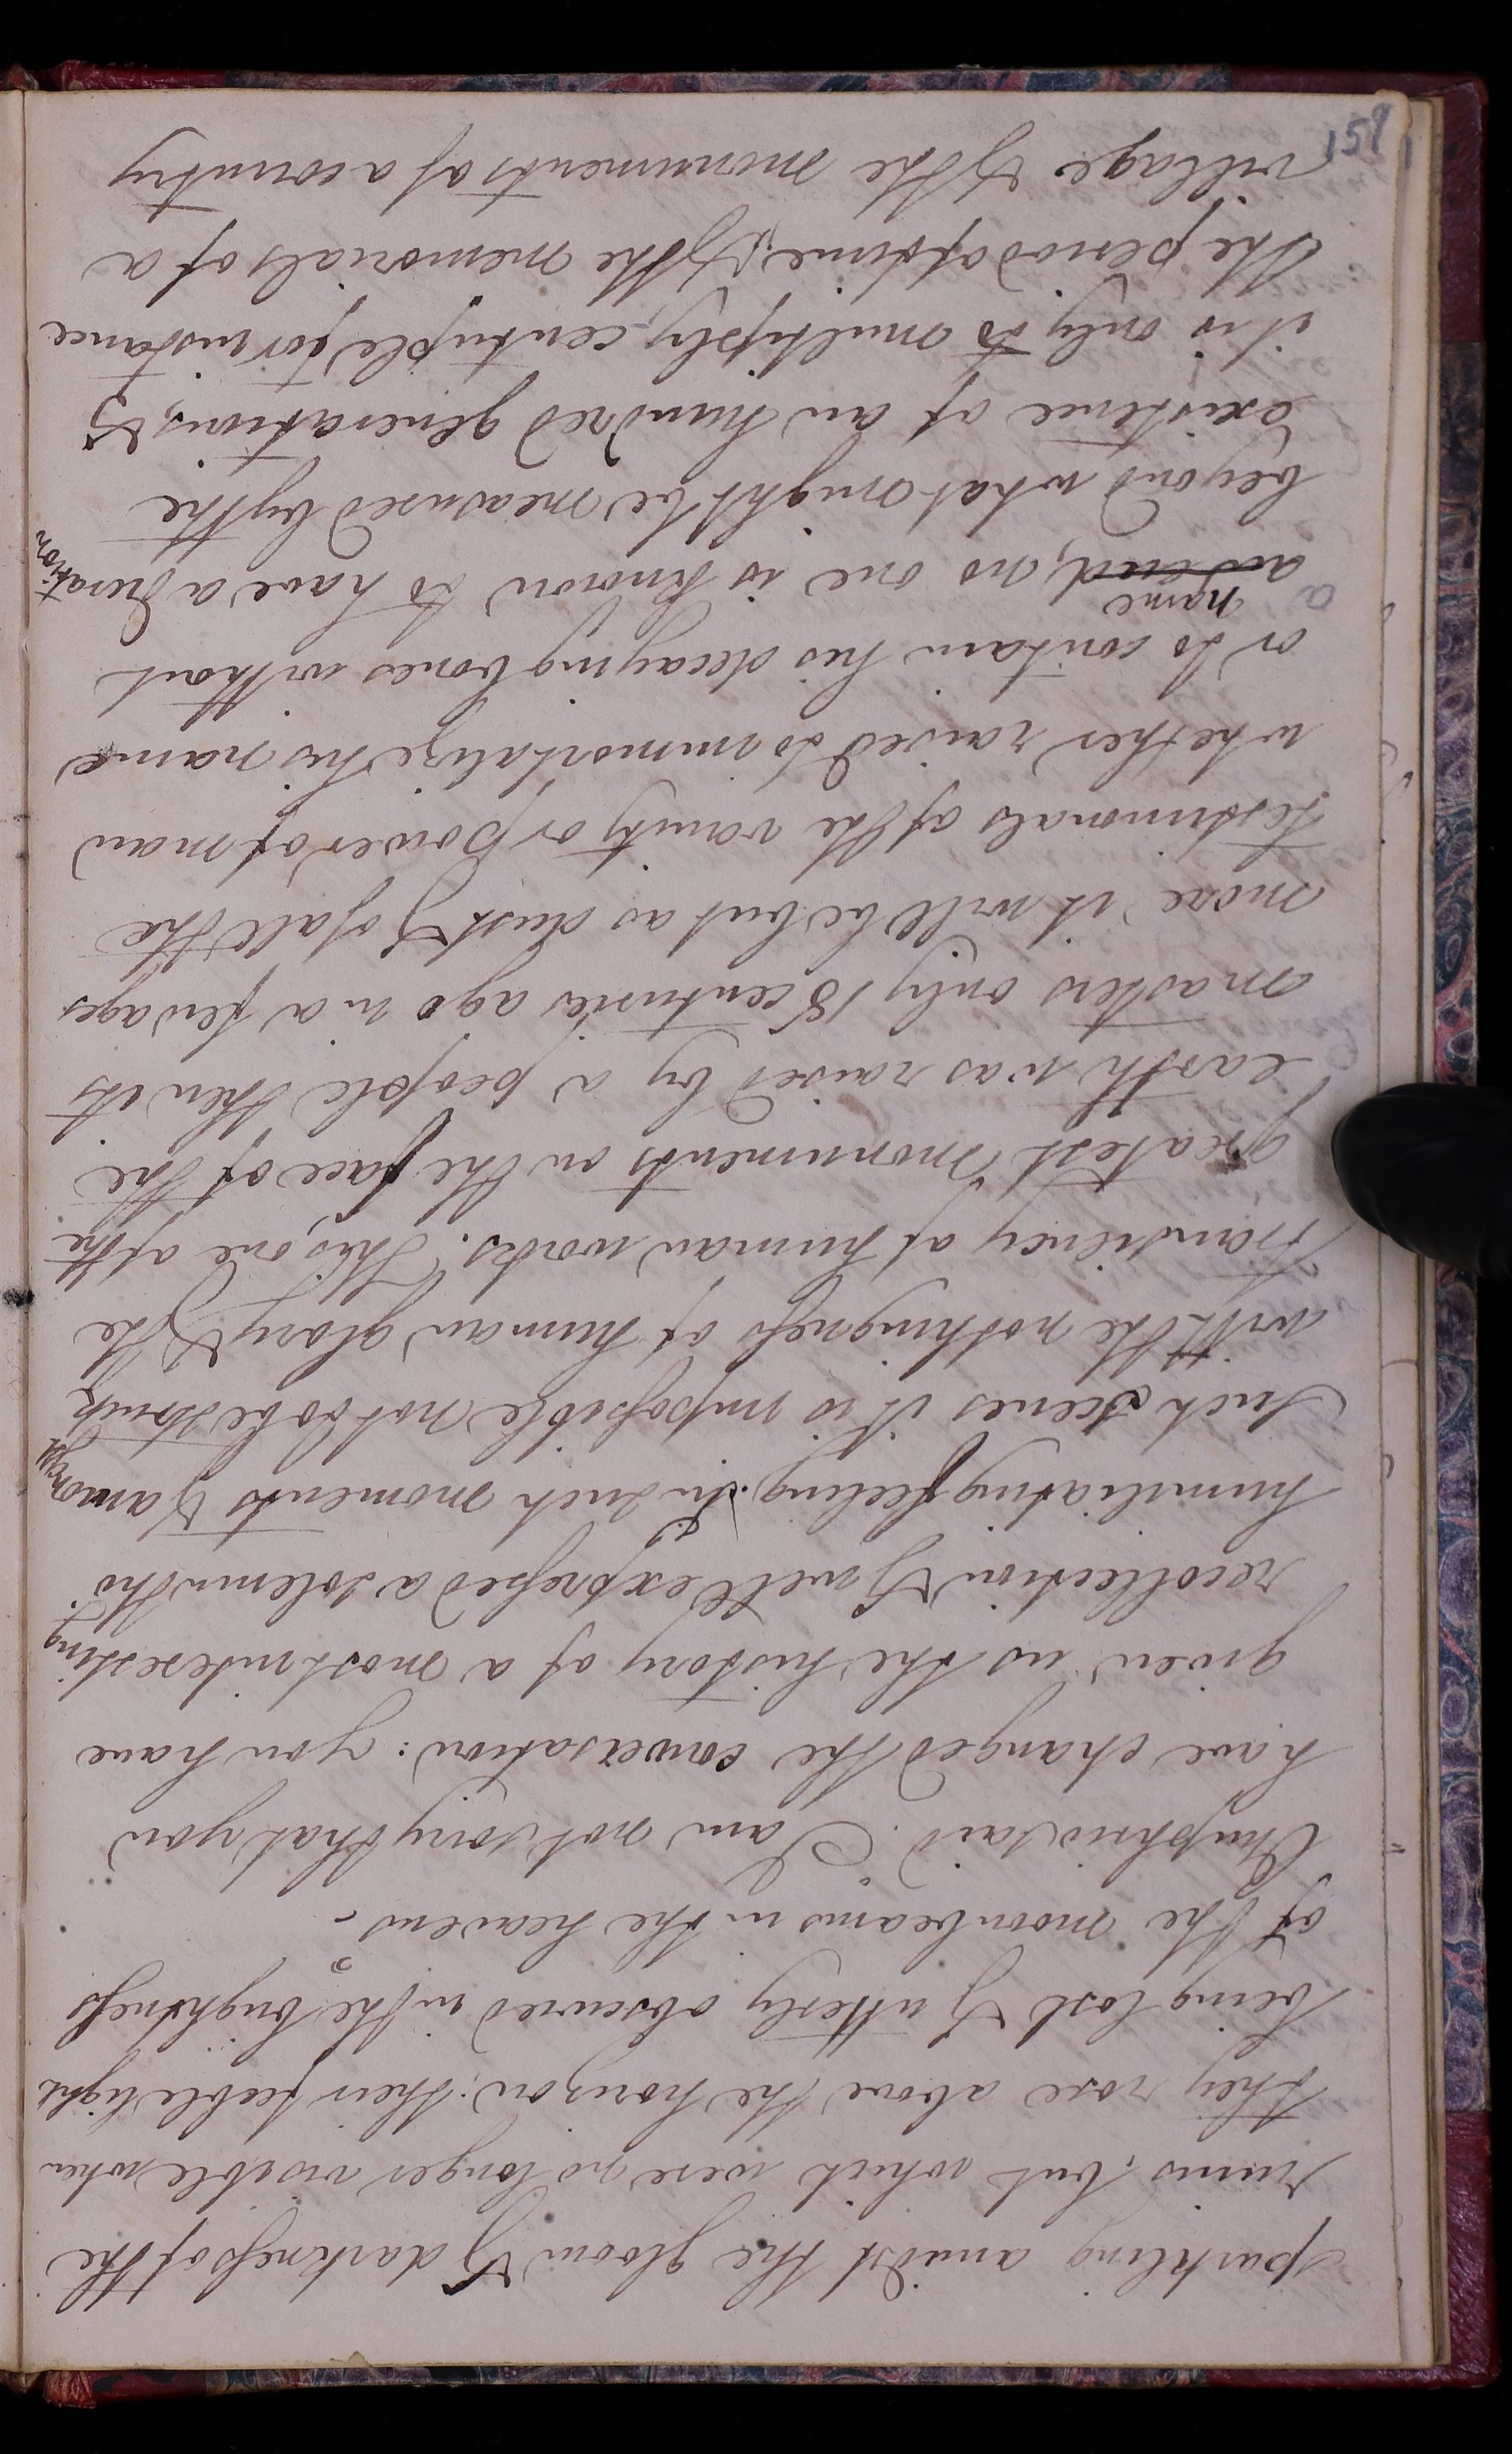 sparkling amidst the gloom & darkness of the
ruins; but which were no longer visible when
they rose above the horizon: their feeble light
being lost & utterly obscured in the brightness
of the moonbeams in the heavens -
Onuphrio said. I am not sorry that you
have changed the conversation: you have
given us the history of a most interesting
recollection & well expressed a solemn tho
humiliating feeling. In such moments & amongst
such scenes it is impossible not to be struck
with the nothingness of human glory & the
transiency of human works. This, one of the
greatest monuments on the face of the
earth was raised by a people then its
masters only 18 centuries ago in a few ages
more it will be but as dust & of all the
testimonals of the vanity or power of man
whether raised to immortalize his name
or to contain his decaying bones without
a name, no one is known to have a duration
beyond what might be measured by the
existence of an hundred generations; &
it is only to multiply, centuple for instance
the period of time; & the memorials of a
village & the monuments of a country
158